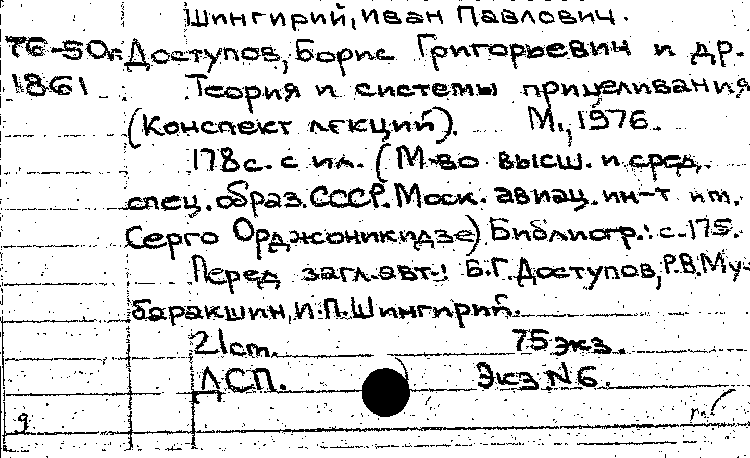 Шингирий, Иван Павлович.
76-50п Доступов, Борис Григорьевич и др.
1861 Теория и системы прицеливания
(Конспект лекций). М., 1976.
178 с. с ил. (М-во высш. и сред.
спец. образ. СССР. Моск. авиац. ин-т им.
Серго Орджоникидзе) Библиогр.: с. 175.
Перед загл. авт.: Б.Г. Доступов, Р.В. Му-
баракшин, И.П. Шингирий.
21 cm. 75 экз.
ДСП. Экз N 6.
9